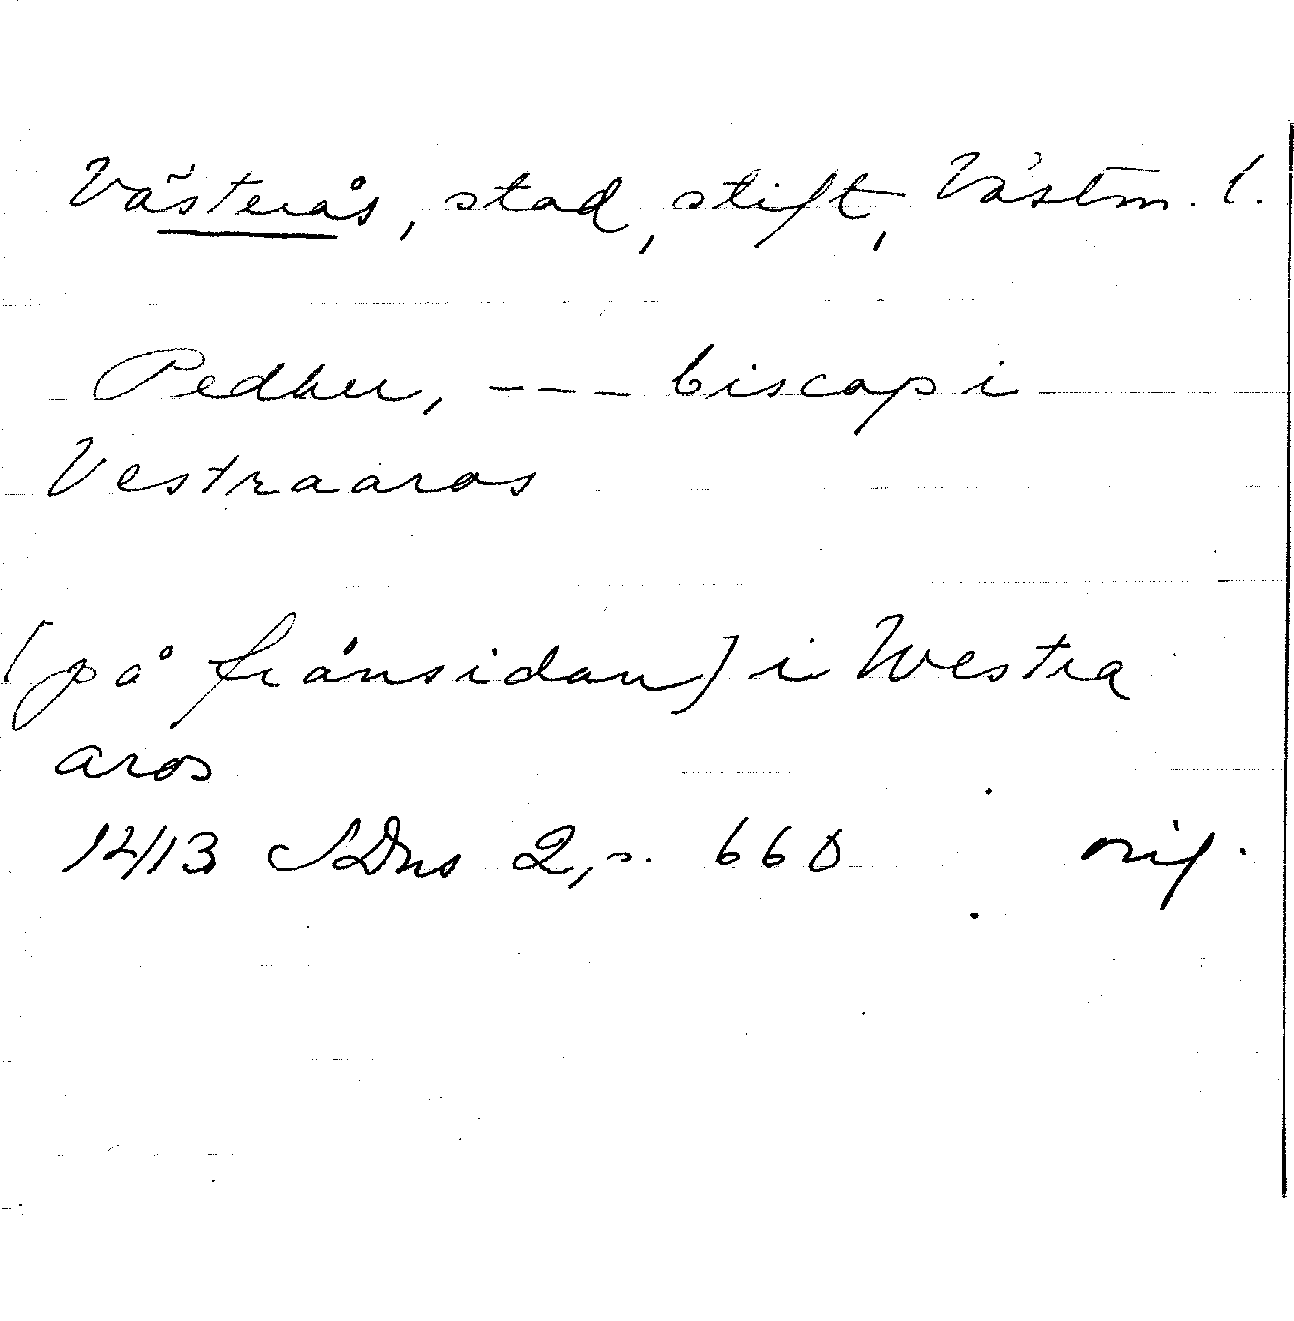 Västerås, stad, stift, Västm. l.
Pedher, --- biscop i
Vestraaros
(på frånsidan) i Westra
aros
1413 SDns 2, s. 660 orig.